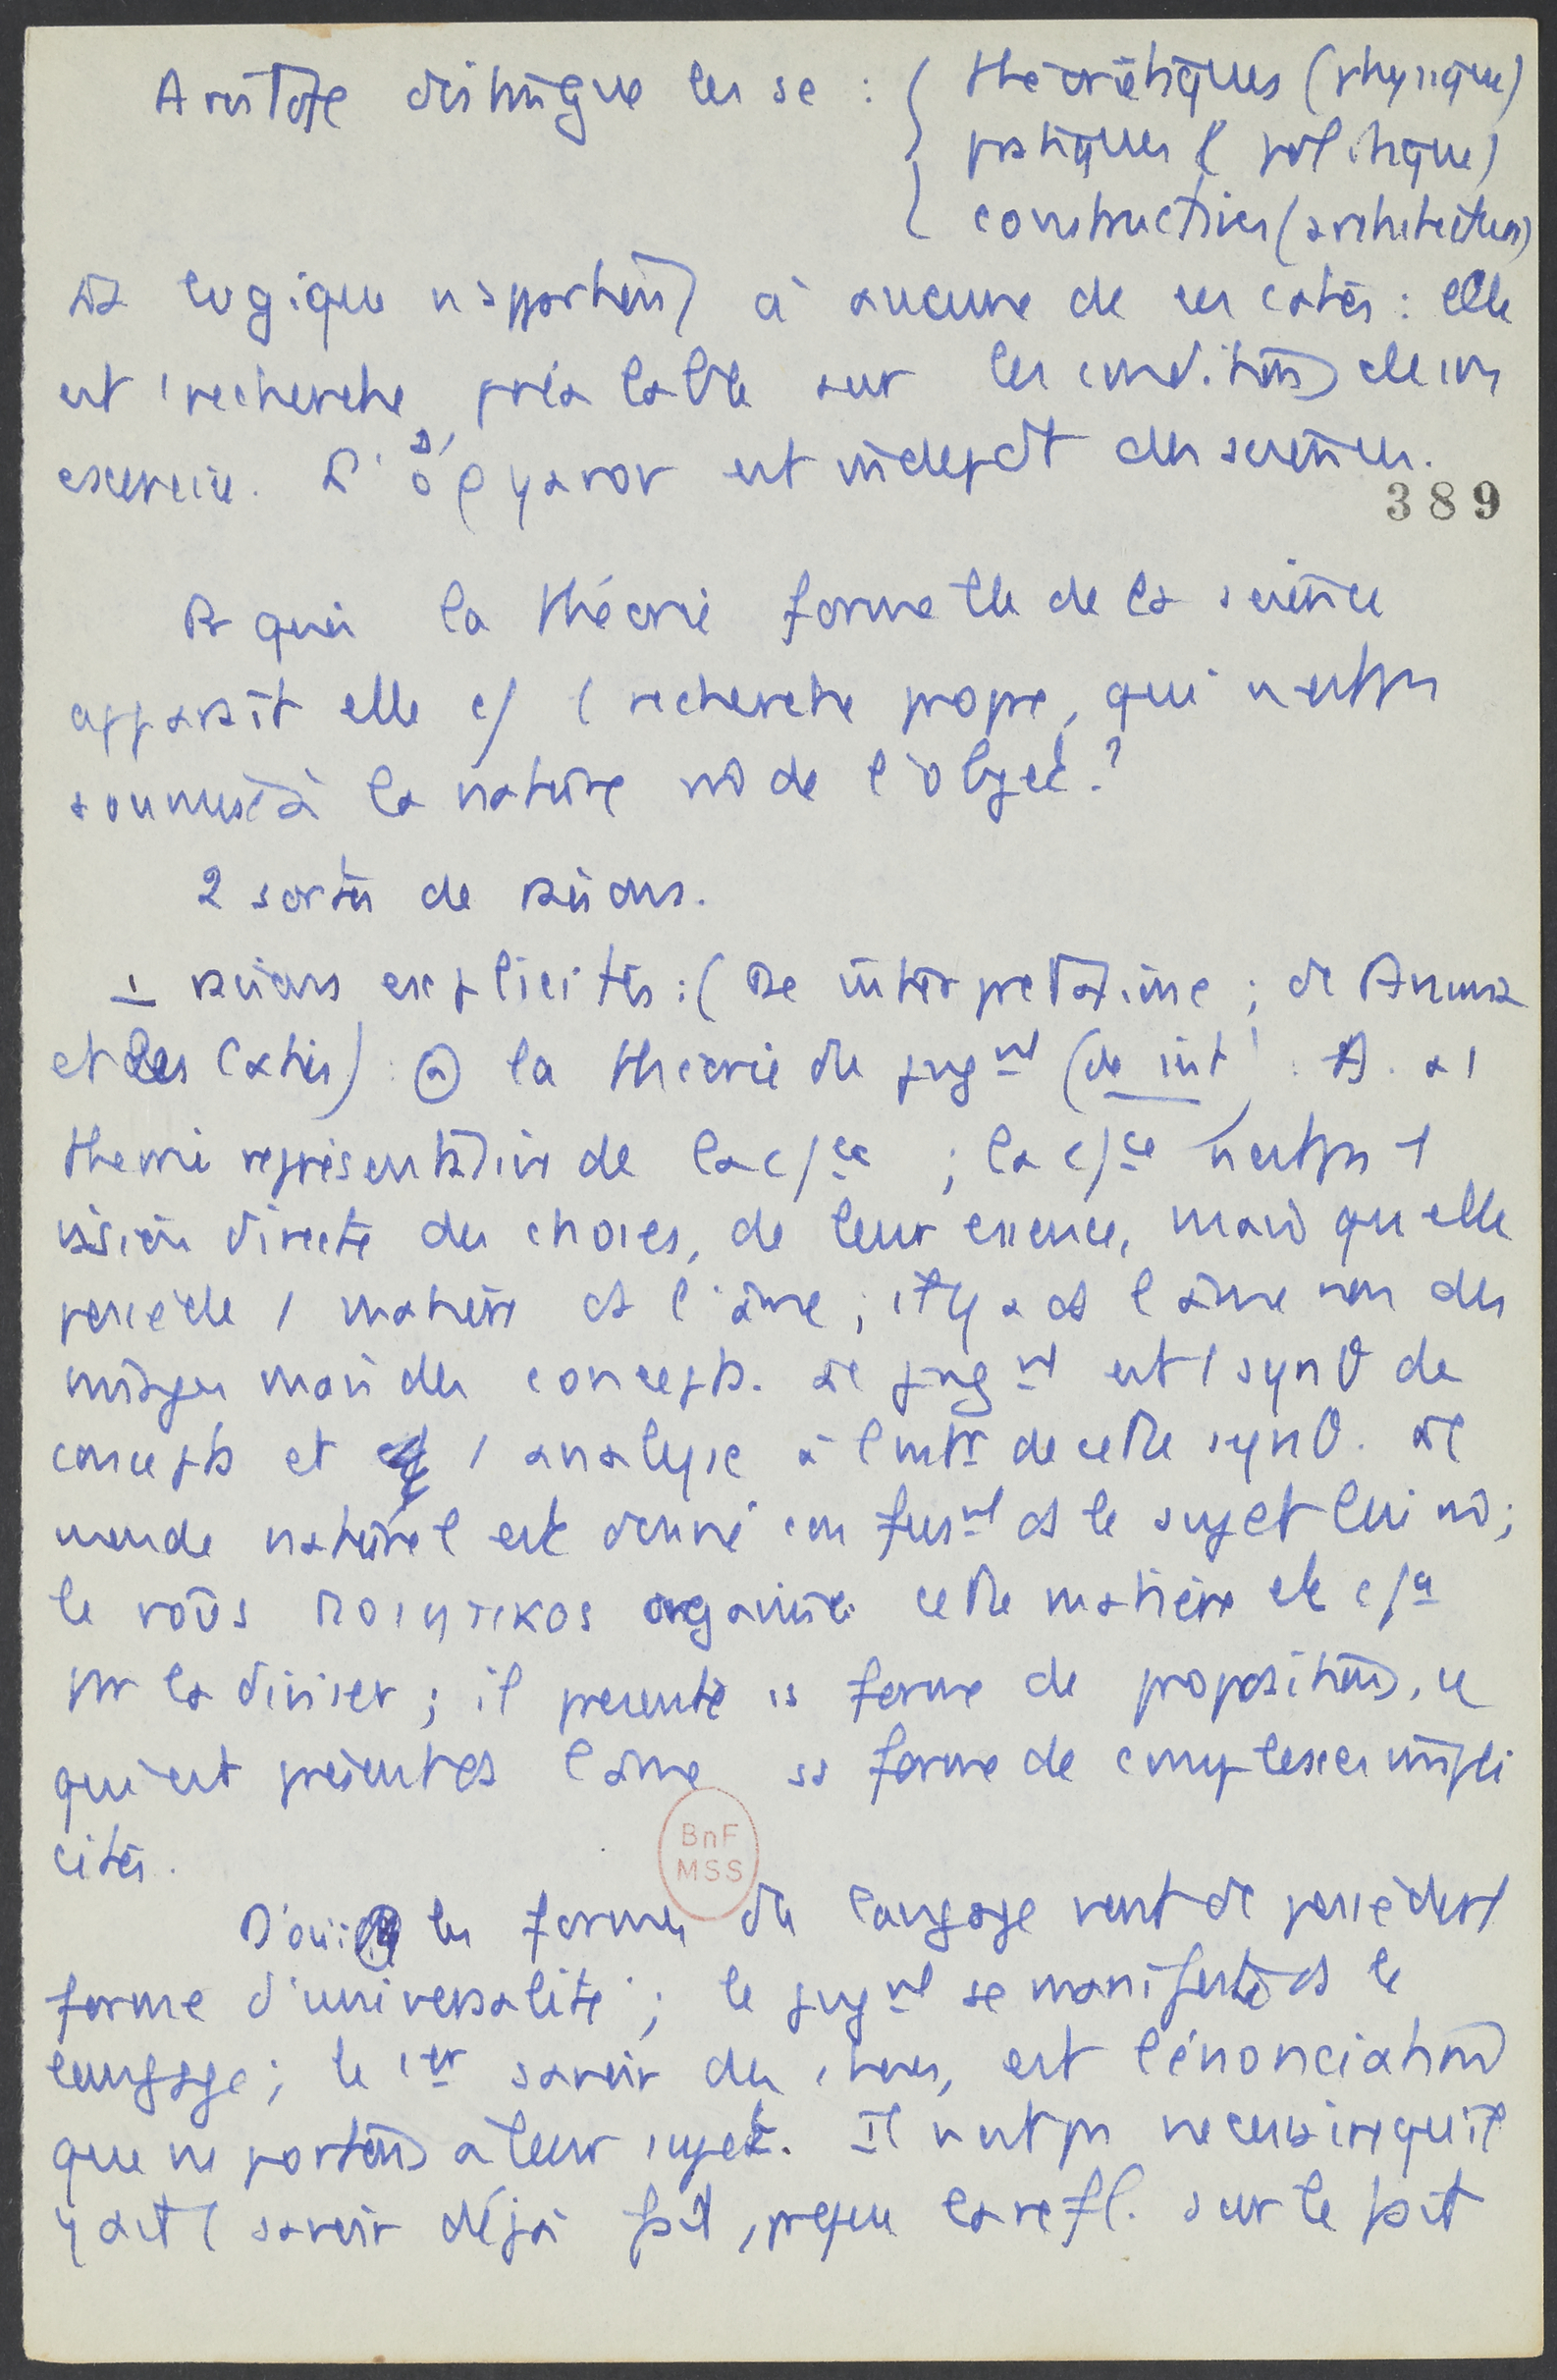 Aristote distingue les sc : { théorétiques (physique)
pratiques ( politique)
constructives (architecture)
La logique n'appartient à aucune de ces catés : elle
est 1 recherche préalable sur les conditions de son
exercice. L' ὄργανον est indepdt des sciences.
389
Pr quoi la théorie formelle de la science
apparaît elle c/ 1 recherche propre, qui n'est pas
soumise à la nature m̂ de l'objet ?
2 sortes de raisons.
1 raisons explicites : ( De interpretatione ; de Anima
et les Catés) : (a) la théorie du jugnt (de int) : A. a 1
théorie représentative de la c/ce ; la c/ce n'est pas 1
vision directe des choses, de leur essence, mais qu'elle
possède 1 matière ds l'âme ; il y a ds l'âme non des
images mais des concepts. Le jugnt est 1 synθ de
concepts et 1 analyse à l'intr de cette synθ. Le
monde naturel est donné confusnt ds le sujet lui m̂ ;
le νοῦς ποιητικος organise cette matière de c/ce
pr la diviser ; il présente ss forme de propositions, ce
qui est présent ds l'âme ss forme de complexes impli
cités.
D'où : les formes du langage vont de posséder 1
forme d'universalité ; le jugnt se manifeste ds le
langage ; le 1er savoir des choses, est l'énonciation
que ns portons à leur sujet. Il n'est pas nécessaire qu'il
y ait 1 savoir déjà fait, pr que la refl. sur le fait
BnF
MSS